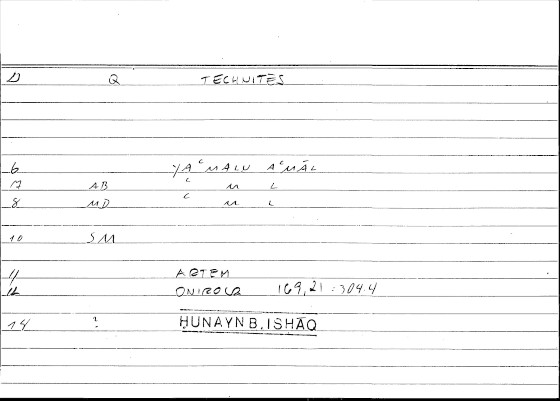 D Q TECHNITĒS
6 YAʿMALU AʿMĀL
7 AB ʿ M L
8 MD ʿ M L
10 SM
11 ARTEM
12 ONIROCR 169,21 : 304.4
14 : HUNAYN B. ISHĀQ